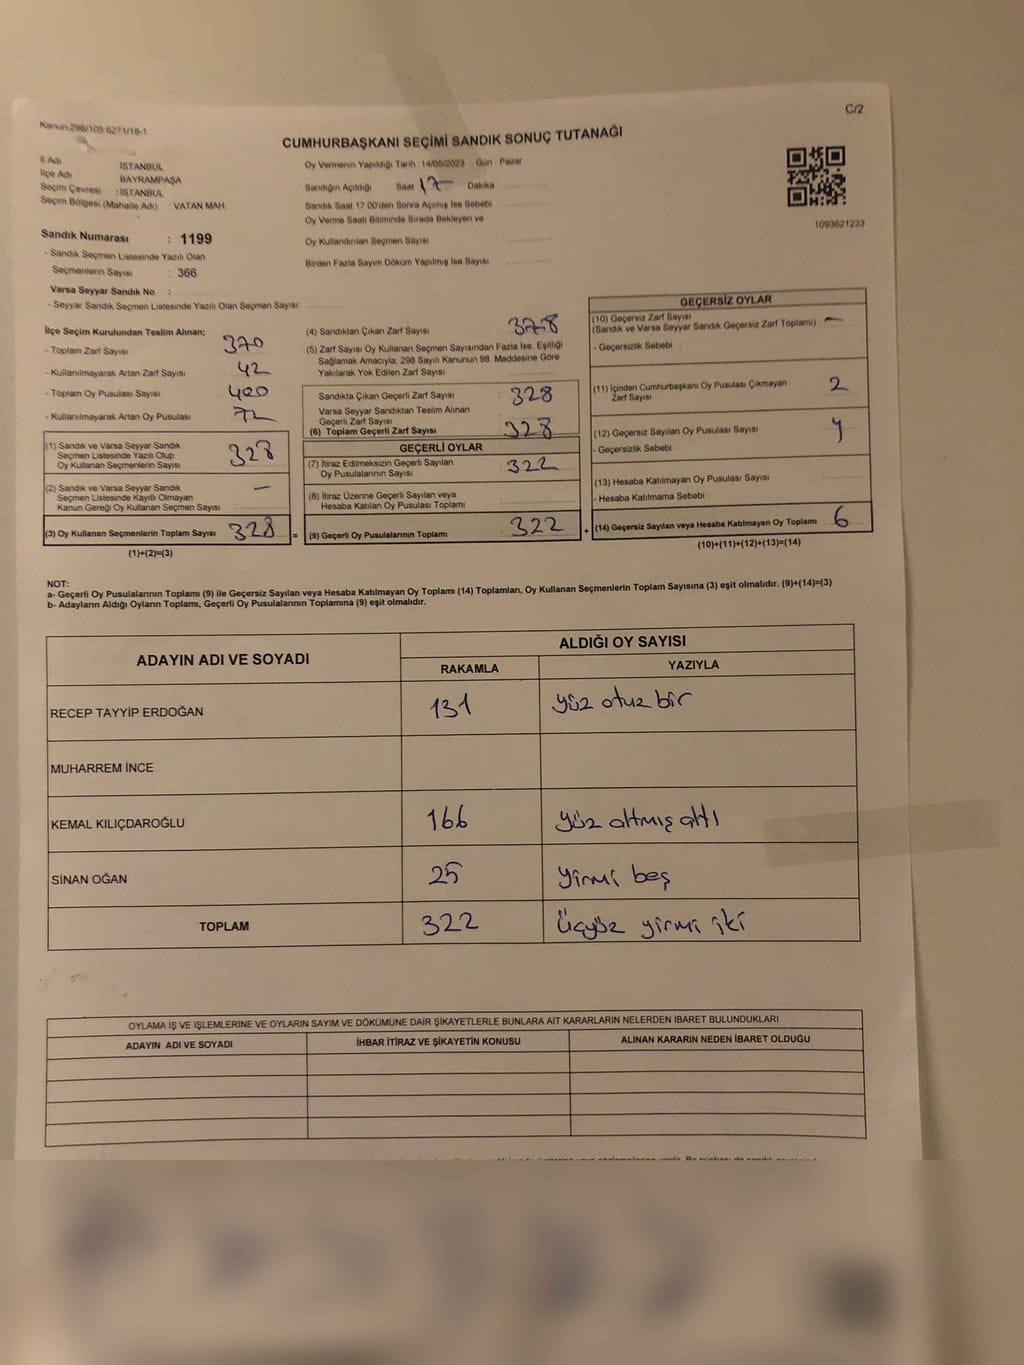 C/2
Kanun:298/105.6271/18-1
CUMHURBAŞKANI SEÇİMİ SANDIK SONUÇ TUTANAĞI
İl Adı : İSTANBUL
İlçe Adı : BAYRAMPAŞA
Seçim Çevresi : İSTANBUL
Seçim Bölgesi (Mahalle Adı) VATAN MAH
Oy Vermenin Yapıldığı Tarih 14/05/2023 Gün Pazar
Sandığın Açıldığı Saat 17 Dakika
Sandık Saat 17:00'den Sonra Açımış İse Sebebi
Oy Verme Saati Bitiminde Sırada Bekleyen ve
Oy Kullandırılan Seçmen Sayısı
Birden Fazla Sayım Döküm Yapılmış İse Sayısı
1093621233
Sandık Numarası : 1199
- Sandık Seçmen Listesinde Yazılı Olan
Seçmenlerin Sayısı : 366
Varsa Seyyar Sandık No :
- Seyyar Sandık Seçmen Listesinde Yazılı Olan Seçmen Sayısı:
İlçe Seçim Kurulundan Teslim Alınan;
- Toplam Zarf Sayısı 370
- Kullanılmayarak Artan Zarf Sayısı 42
- Toplam Oy Pusulası Sayısı 400
- Kullanılmayarak Artan Oy Pusulası 72
(1) Sandık ve Varsa Seyyar Sandık
Seçmen Listesinde Yazılı Olup
Oy Kullanan Seçmenlerin Sayısı 328
(2) Sandık ve Varsa Seyyar Sandık
Seçmen Listesinde Kayıtlı Olmayan
Kanun Gereği Oy Kullanan Seçmen Sayısı —
(3) Oy Kullanan Seçmenlerin Toplam Sayısı 328 =
(1)+(2)=(3)
(4) Sandıktan Çıkan Zarf Sayısı 328
(5) Zarf Sayısı Oy Kullanan Seçmen Sayısından Fazla İse, Eşitliği
Sağlamak Amacıyla, 298 Sayılı Kanunun 98. Maddesine Göre
Yakılarak Yok Edilen Zarf Sayısı
Sandıkta Çıkan Geçerli Zarf Sayısı : 328
Varsa Seyyar Sandıktan Teslim Alınan
Geçerli Zarf Sayısı
(6) Toplam Geçerli Zarf Sayısı 328
GEÇERLİ OYLAR
(7) İtiraz Edilmeksizin Geçerli Sayılan
Oy Pusulalarının Sayısı : 322
(8) İtiraz Üzerine Geçerli Sayılan veya
Hesaba Katılan Oy Pusulası Toplamı
(9) Geçerli Oy Pusulalarının Toplamı : 322 +
GEÇERSİZ OYLAR
(10) Geçersiz Zarf Sayısı
(Sandık ve Varsa Seyyar Sandık Geçersiz Zarf Toplamı) —
- Geçersizlik Sebebi
(11) İçinden Cumhurbaşkanı Oy Pusulası Çıkmayan
Zarf Sayısı 2
(12) Geçersiz Sayılan Oy Pusulası Sayısı 4
- Geçersizlik Sebebi
(13) Hesaba Katılmayan Oy Pusulası Sayısı
- Hesaba Katılmama Sebebi :
(14) Geçersiz Sayılan veya Hesaba Katılmayan Oy Toplamı 6
(10)+(11)+(12)+(13)=(14)
NOT:
a- Geçerli Oy Pusulalarının Toplamı (9) ile Geçersiz Sayılan veya Hesaba Katılmayan Oy Toplamı (14) Toplamları, Oy Kullanan Seçmenlerin Toplam Sayısına (3) eşit olmalıdır. (9)+(14)=(3)
b- Adayların Aldığı Oyların Toplamı, Geçerli Oy Pusulalarının Toplamına (9) eşit olmalıdır.
ADAYIN ADI VE SOYADI
ALDIĞI OY SAYISI
RAKAMLA YAZIYLA
RECEP TAYYİP ERDOĞAN 131 yüz otuz bir
MUHARREM İNCE
KEMAL KILIÇDAROĞLU 166 yüz altmış altı
SİNAN OĞAN 25 yirmi beş
TOPLAM 322 Üçyüz yirmi iki
OYLAMA İŞ VE İŞLEMLERİNE VE OYLARIN SAYIM VE DÖKÜMÜNE DAİR ŞİKAYETLERLE BUNLARA AİT KARARLARIN NELERDEN İBARET BULUNDUKLARI
ADAYIN ADI VE SOYADI İHBAR İTİRAZ VE ŞİKAYETİN KONUSU ALINAN KARARIN NEDEN İBARET OLDUĞU